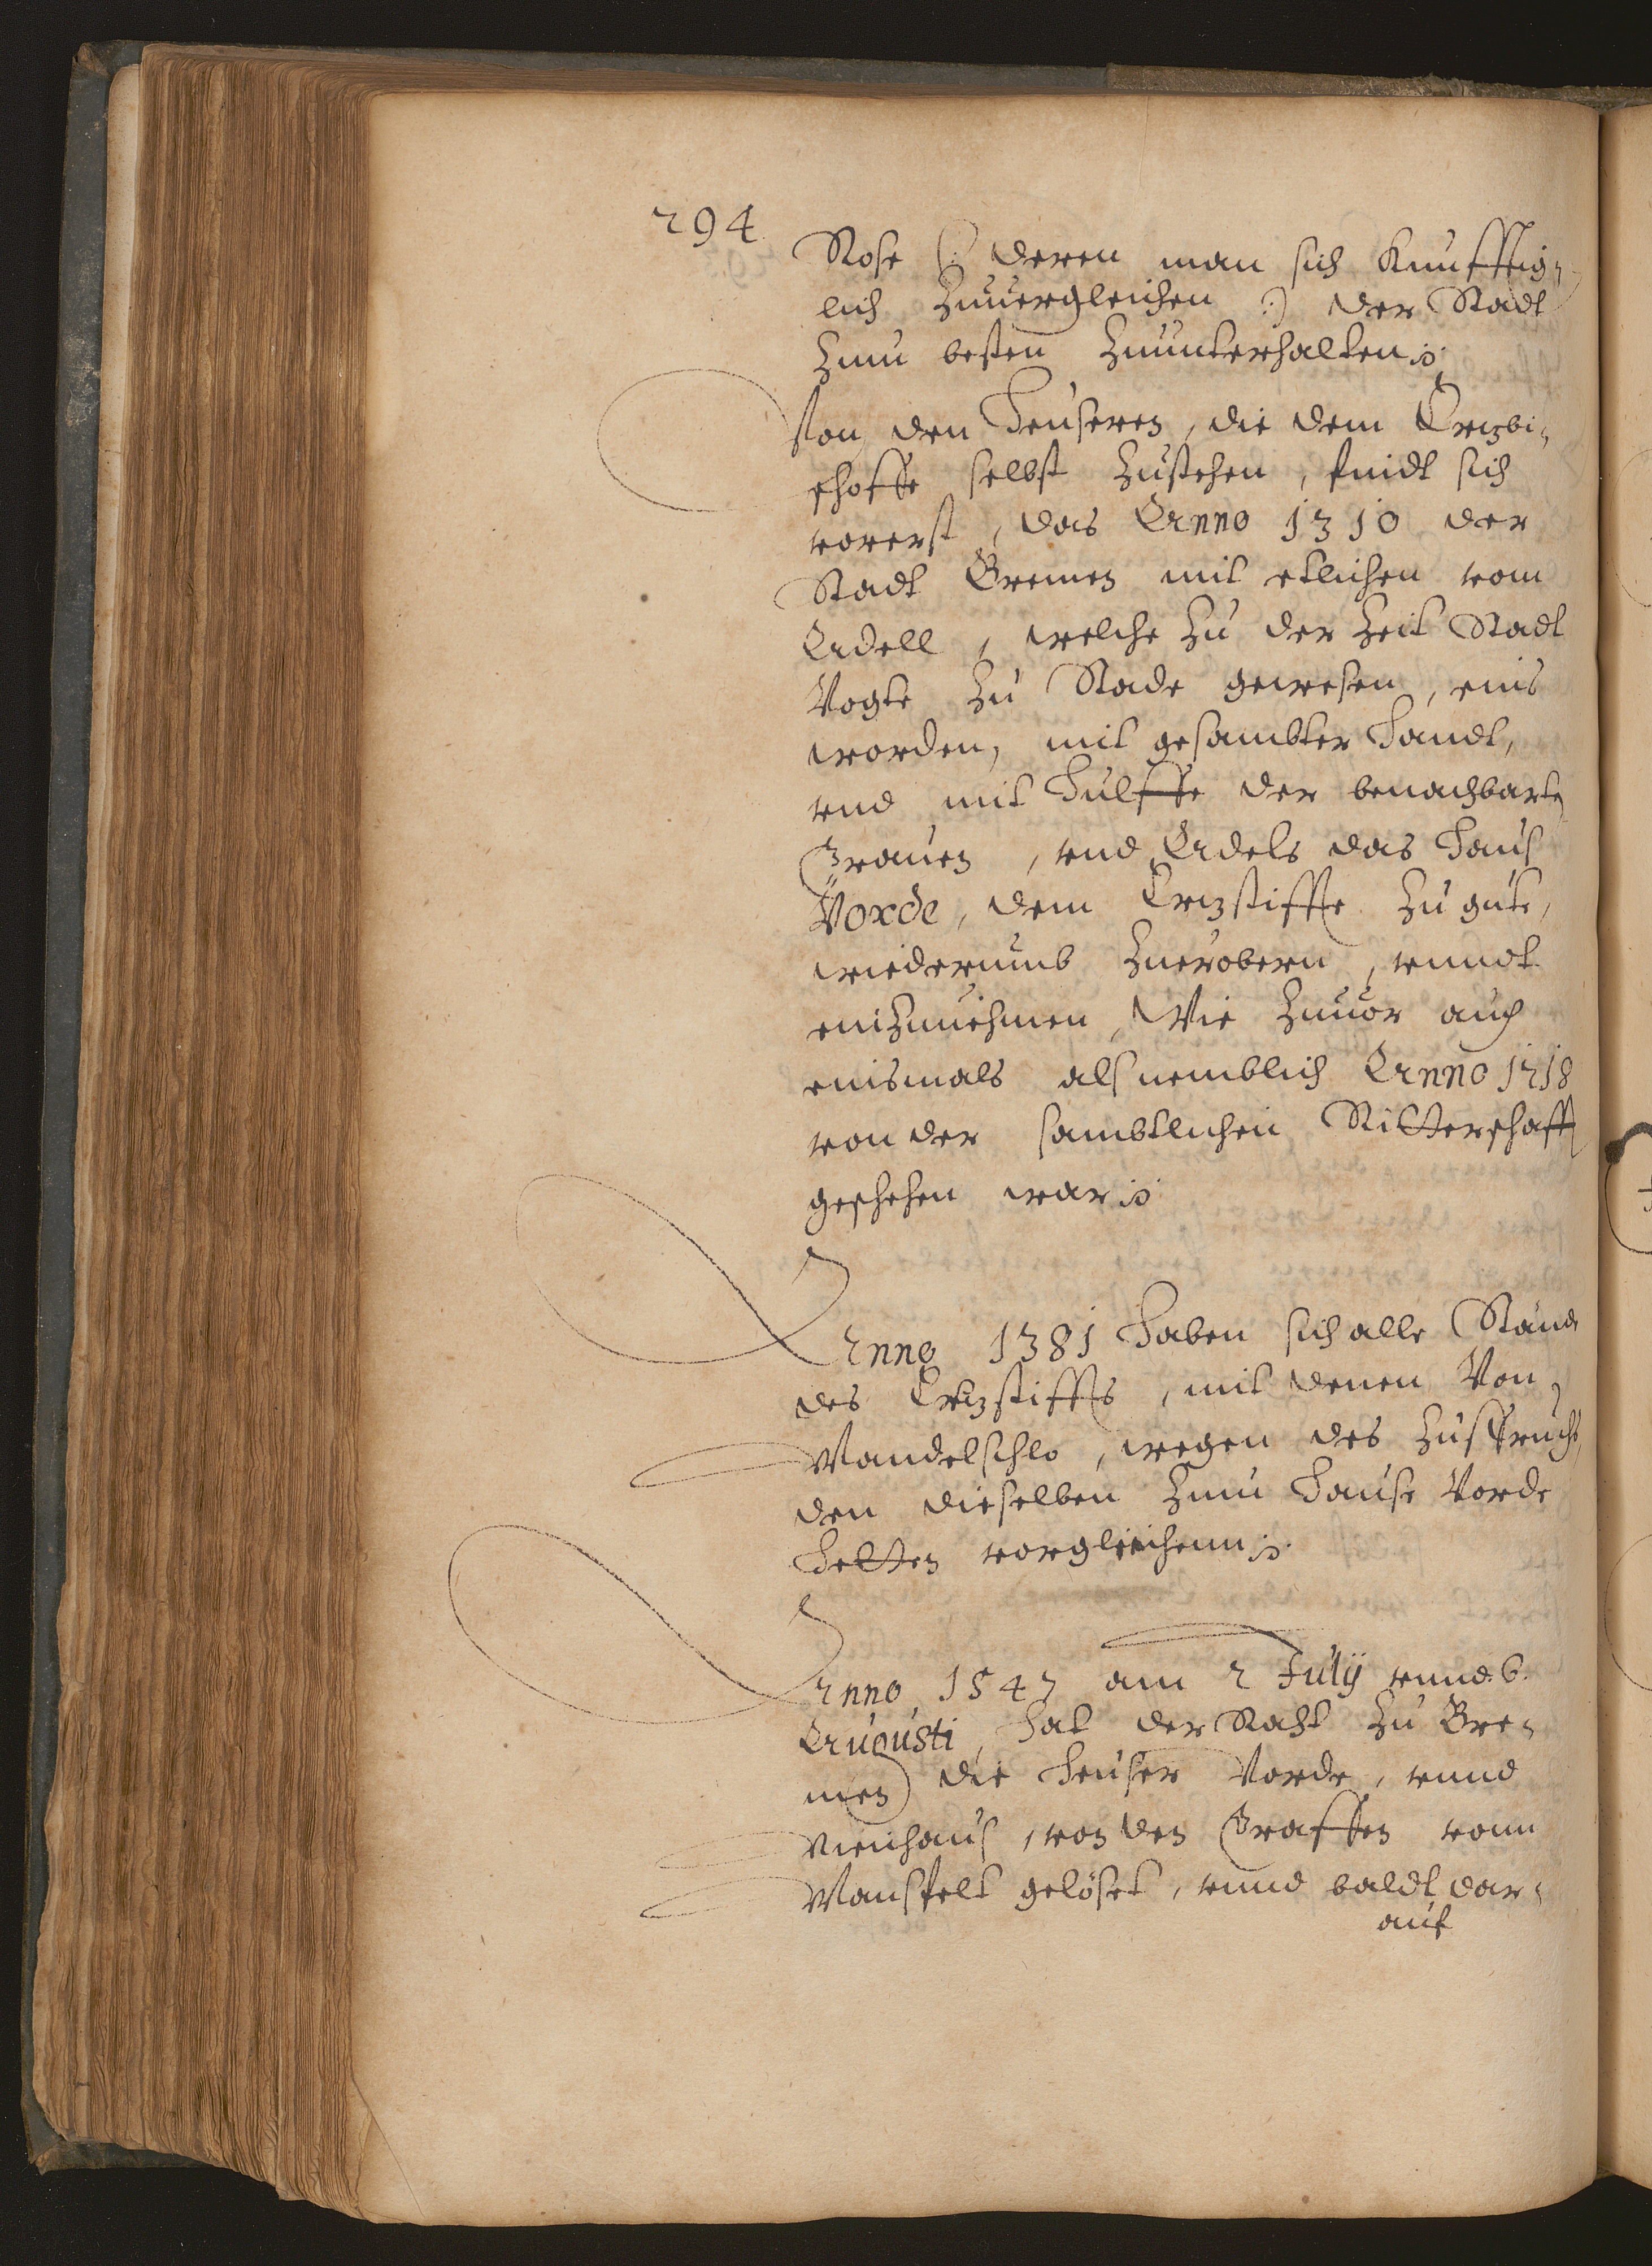 294
Rose (: deren man sich Kunfftig-
lich Zuuergleichen :) der Stadt
Zum besten Zuunterhalten
Von den Heuseren, die dem Ertzbi-
schoffe selbst Zustehen, findt sich
vorerst, das Anno 1310 der
Stadt Bremen mit etlichen vom
Adell, welche Zu der Zeit Stadt
Vogte Zu Stade gewesen, eins
worden, mit gesambter Handt,
vnd mit Hulffe der benachbarten
Grauen, vnd Adels das Hauß
Vorde, dem Ertzstiffte Zu gute,
wiederumb Zuerobern, vnndt
einZunehmen, Wie Zuuor auch
einsmals alß nemblich Anno 1218
von der sambtlichen Ritterschafft
geschehen war
Anno 1381 Haben sich alle Stände
des Ertzstiffts, mit denen Von
Mandelschlo, wegen des Zuspruchs
den dieselben Zum Hause Vorde
Hetten vorgleichenn
Anno 1547 am 2 Julij vnnd 6.
Augusti, Hat der Raht Zu Bre-
men die Heuser Vorde, vnnd
Nienhauß, von den Graffen vonn
Mansfelt gelöset, vnnd baldt dar-
auf